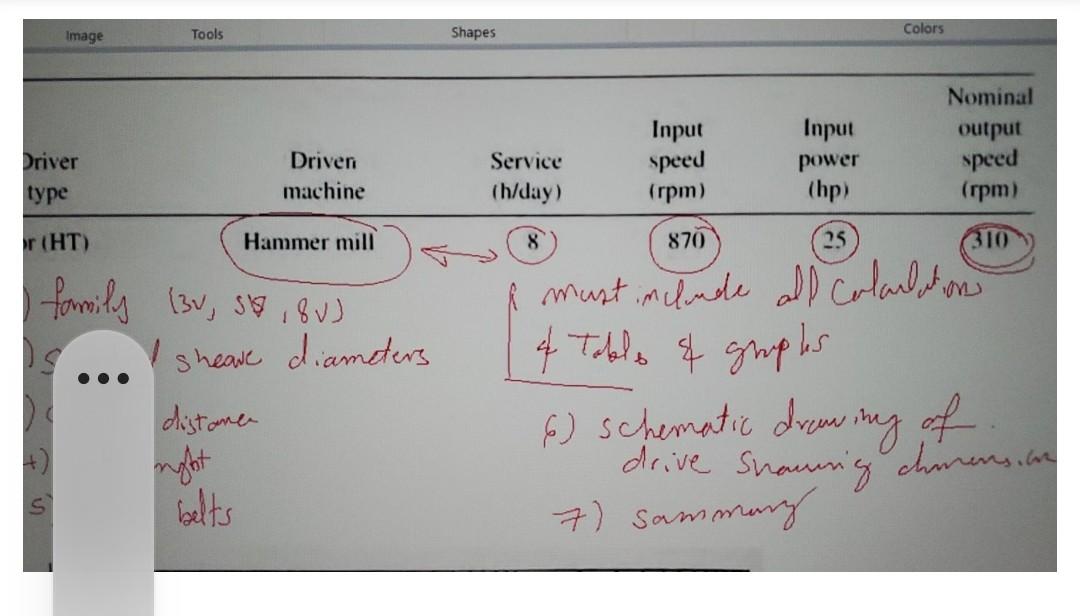 Image Tools Shapes Colors
Driver type
Driven machine
Service (h/day)
Input speed (rpm)
Input power (hp)
Nominal output speed (rpm)
or (HT) Hammer mill 8 870 25 310
) family (3V, 5V, 8V)
) sheave diameters
) distance
4)
5) belts
must include all Calculations
& Tables & graphs
6) schematic drawing of
drive showing dimension
7) summary